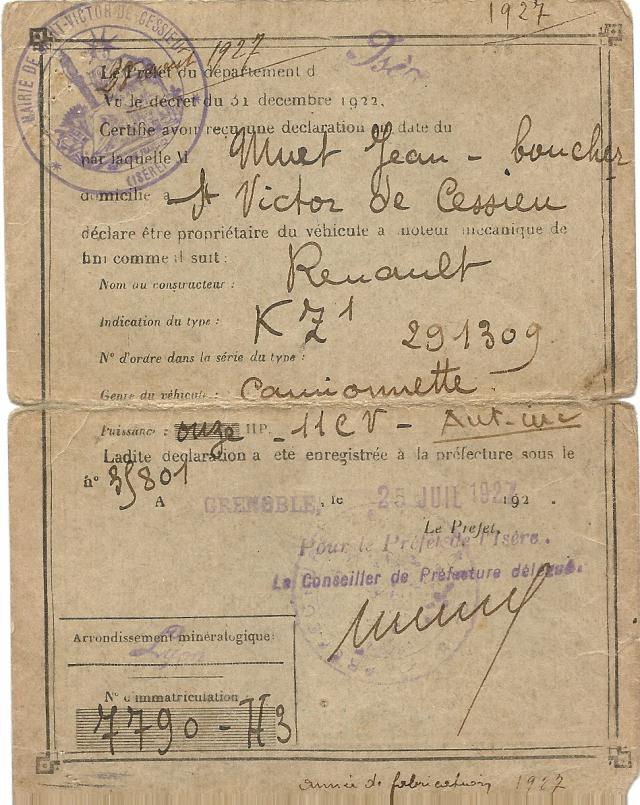 1927
MAIRIE DE SAINT-VICTOR DE CESSIEU
(ISÈRE)
1927
Le Préfet du département d Isère
Vu le décret du 31 décembre 1922,
Certifie avoir reçu une déclaration en date du
par laquelle M Muet Jean - boucher
domicilié à St Victor de Cessieu
déclare être propriétaire du véhicule à moteur mécanique dé-
fini comme il suit :
Nom du constructeur : Renault
Indication du type : KZ1
N° d'ordre dans la série du type : 291309
Genre du véhicule : camionnette
Puissance : onze HP. - 11 CV -
Ladite déclaration a été enregistrée à la préfecture sous le
n° 35801
A GRENOBLE, le 25 JUIL 1927 192 .
Le Préfet,
Pour le Préfet de l'Isère.
Le Conseiller de Préfecture délégué.
Arrondissement minéralogique :
Lyon
N° d'immatriculation
7790 - H3
année de fabrication 1927